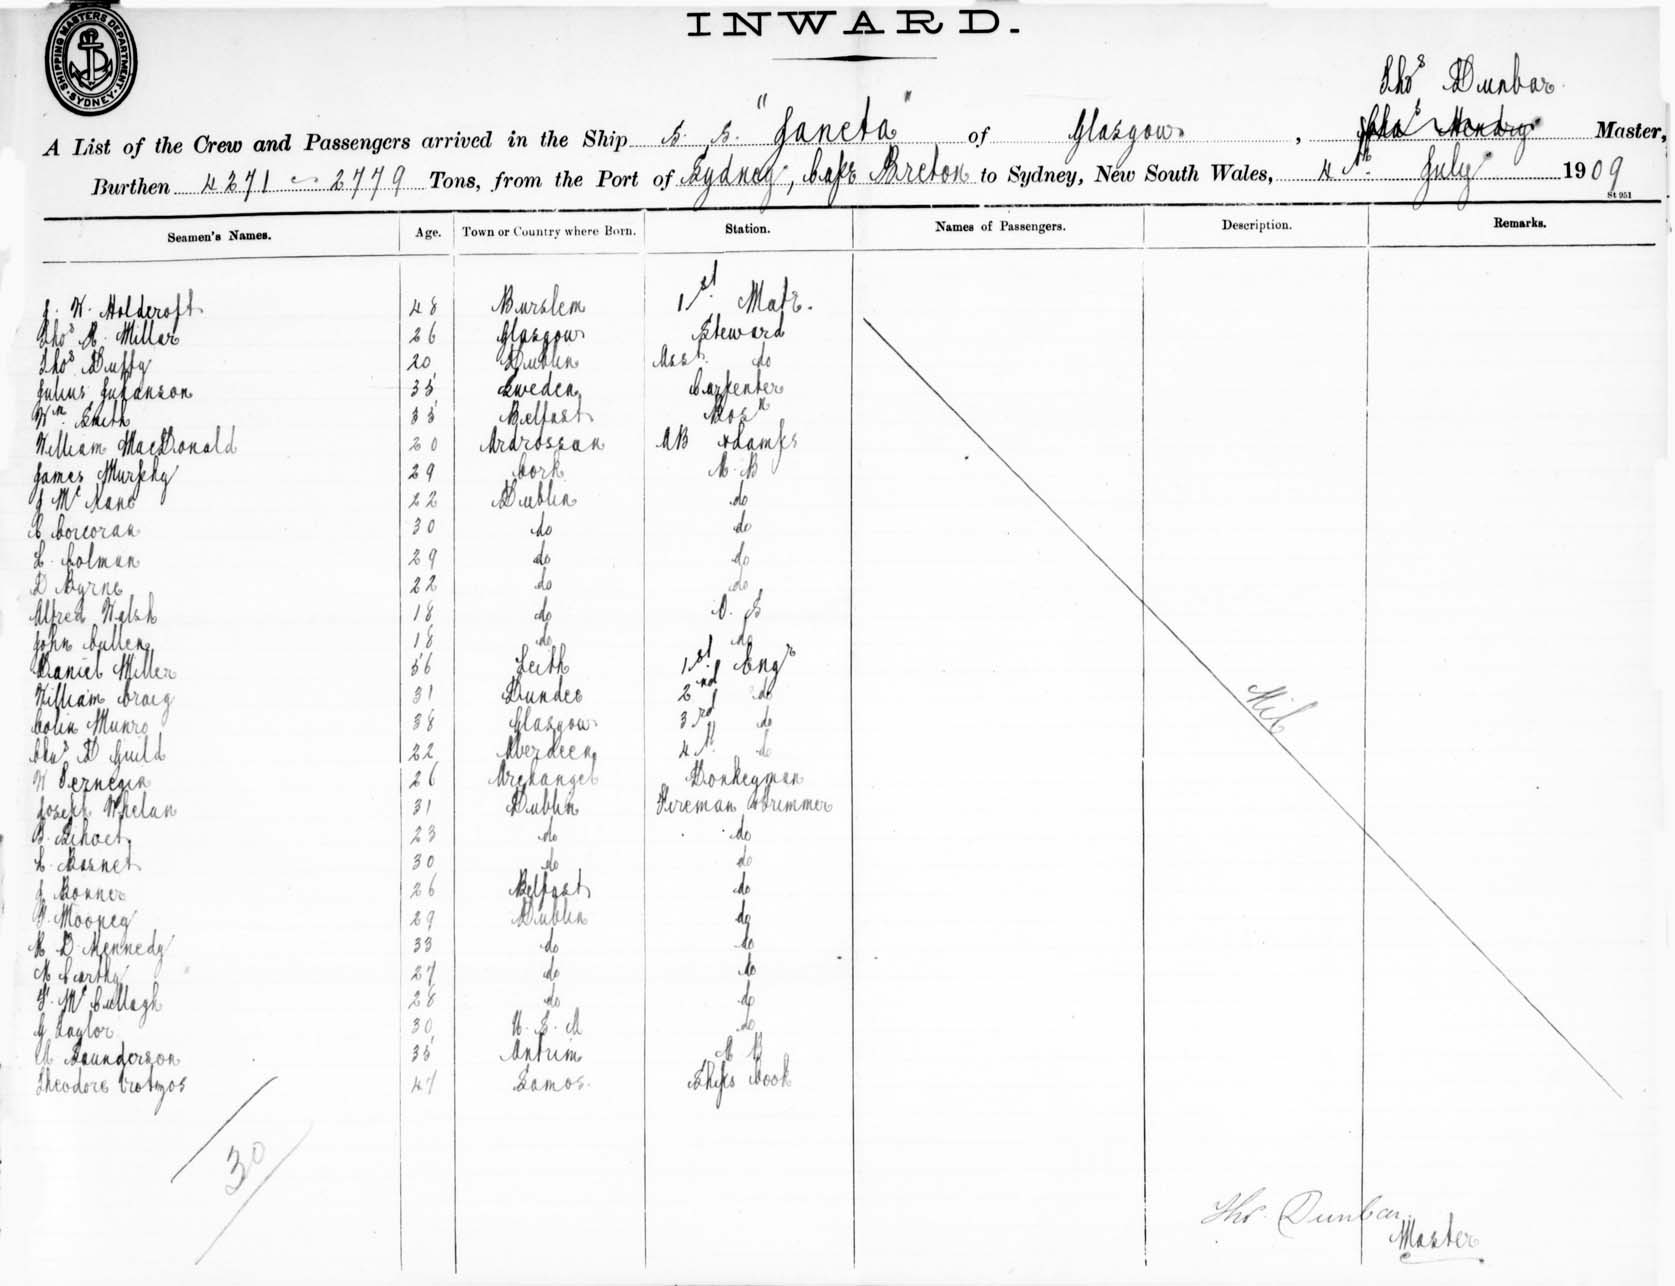 INWARD.
SHIPPING MASTERS DEPARTMENT. SYDNEY.
Thos Dunbar
A List of the Crew and Passengers arrived in the Ship S. S. "Janeta" of Glasgow, Master,
Burthen 4271 ~ 2779 Tons, from the Port of Sydney, Cape Breton to Sydney, New South Wales, 4th July 1909
St 951
Seamen's Names. Age. Town or Country where Born. Station. Names of Passengers. Description. Remarks.
J. W. Holdcroft 48 Burslem 1st Mate.
Thos R. Millar 26 Glasgow Steward
Thos Duffy 20 Dublin Asst. do
Julius Juhanson 35 Sweden Carpenter
Wm Smith 33 Belfast Bosn
William MacDonald 20 Ardrossan AB & Lamps
James Murphy 29 Cork A. B
J Mc Kane 22 Dublin do
C Corcoran 30 do do
L. Colman 29 do do
D Byrne 22 do do
Alfred Walsh 18 do O. S
John Cullen 18 do do
Daniel Miller 56 Leith 1st Engr
William Craig 31 Dundee 2nd do
Colin Munro 38 Glasgow 3rd do
Chas D Guild 22 Aberdeen 4th do
W 26 Archangel Donkeyman
Joseph Whelan 31 Dublin Fireman & Trimmer
23 do do
L. Basnet 30 do do
J Bonner 26 Belfast do
Mooney 29 Dublin do
R D Kennedy 33 do do
M Carthy 27 do do
Mc Cullagh 28 do do
G Taylor 30 U. S. A do
A Saunderson 35 Antrim A B
Theodore 47 Samos. Ships Cook
Nil
30
Thos. Dunbar.
Master